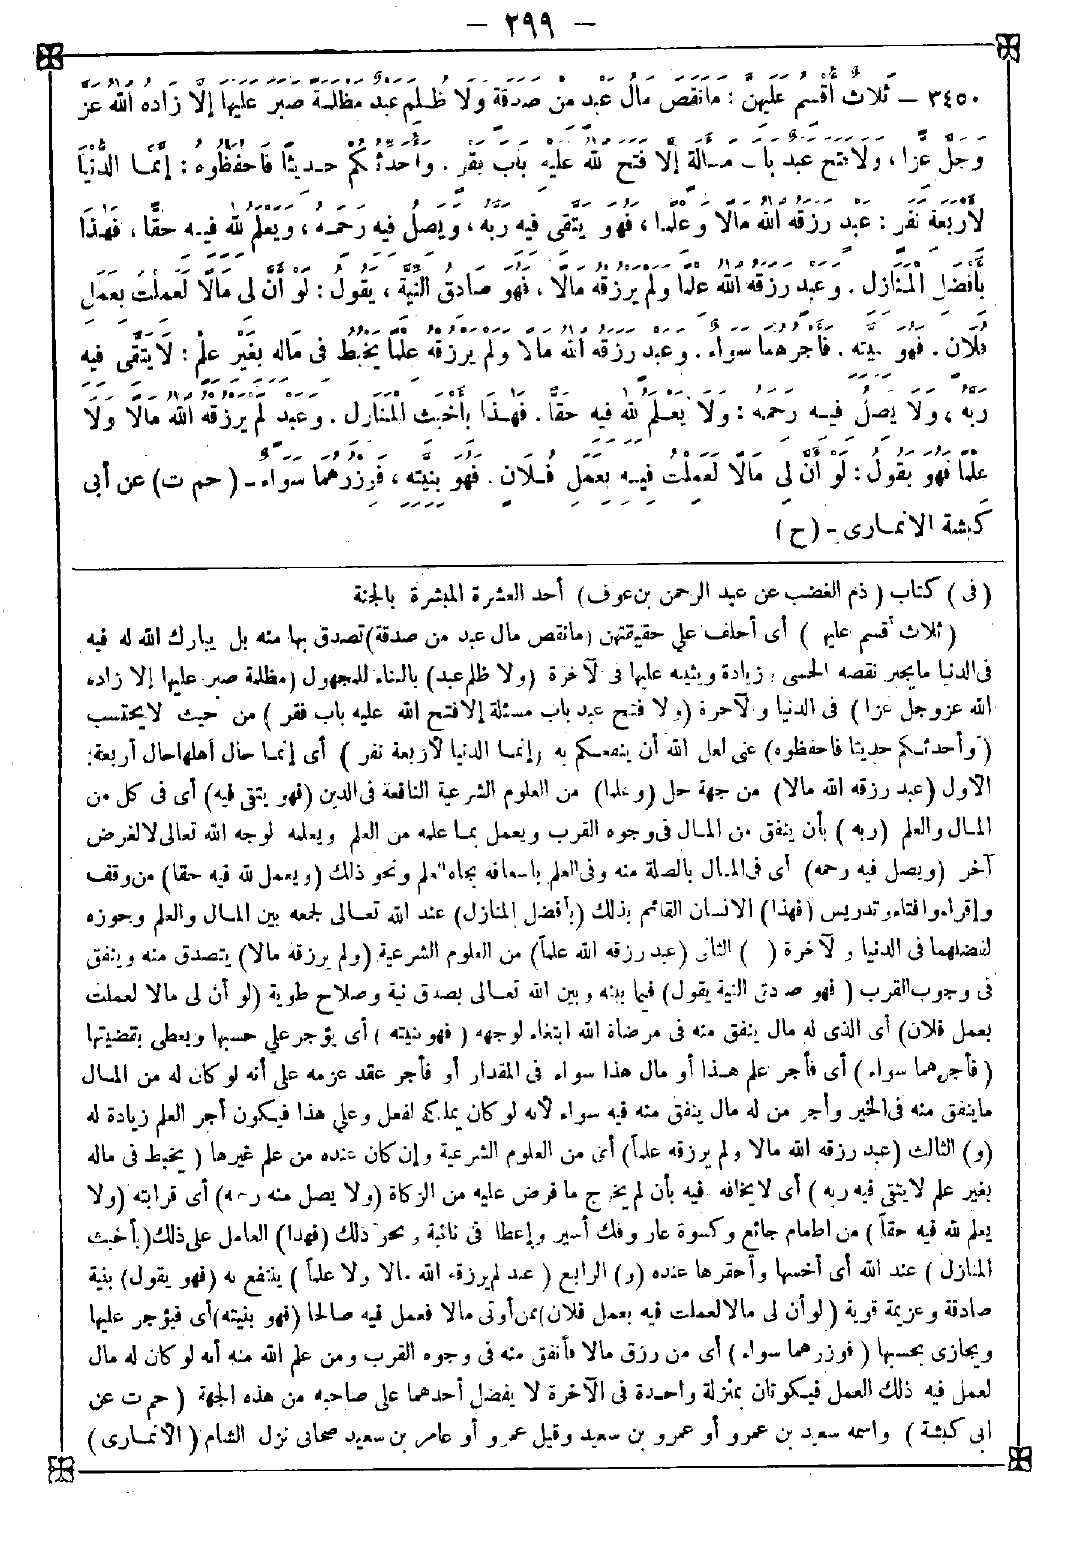 — ٢٩٩ —
٣٤٥٠ — ثَلَاثٌ أُقْسِمُ عَلَيْهِنَّ : مَا نَقَصَ مَالُ عَبْدٍ مِنْ صَدَقَةٍ وَلَا ظُلِمَ عَبْدٌ مَظْلِمَةً صَبَرَ عَلَيْهَا إِلَّا زَادَهُ اللهُ عَزَّ
وَجَلَّ عِزًّا ، وَلَا فَتَحَ عَبْدٌ بَابَ مَسْأَلَةٍ إِلَّا فَتَحَ اللهُ عَلَيْهِ بَابَ فَقْرٍ . وَأُحَدِّثُكُمْ حَدِيثًا فَاحْفَظُوهُ : إِنَّمَا الدُّنْيَا
لِأَرْبَعَةِ نَفَرٍ : عَبْدٍ رَزَقَهُ اللهُ مَالًا وَعِلْمًا ، فَهُوَ يَتَّقِى فِيهِ رَبَّهُ ، وَيَصِلُ فِيهِ رَحِمَهُ ، وَيَعْلَمُ لِلهِ فِيهِ حَقًّا ، فَهٰذَا
بِأَفْضَلِ الْمَنَازِلِ . وَعَبْدٍ رَزَقَهُ اللهُ عِلْمًا وَلَمْ يَرْزُقْهُ مَالًا ، فَهُوَ صَادِقُ النِّيَّةِ ، يَقُولُ : لَوْ أَنَّ لِى مَالًا لَعَمِلْتُ بِعَمَلِ
فُلَانٍ . فَهُوَ بِنِيَّتِهِ . فَأَجْرُهُمَا سَوَاءٌ . وَعَبْدٍ رَزَقَهُ اللهُ مَالًا وَلَمْ يَرْزُقْهُ عِلْمًا يَخْبِطُ فِى مَالِهِ بِغَيْرِ عِلْمٍ : لَا يَتَّقِى فِيهِ
رَبَّهُ ، وَلَا يَصِلُ فِيهِ رَحِمَهُ : وَلَا يَعْلَمُ لِلهِ فِيهِ حَقًّا . فَهٰذَا بِأَخْبَثِ الْمَنَازِلِ . وَعَبْدٍ لَمْ يَرْزُقْهُ اللهُ مَالًا وَلَا
عِلْمًا فَهُوَ يَقُولُ : لَوْ أَنَّ لِى مَالًا لَعَمِلْتُ فِيهِ بِعَمَلِ فُلَانٍ . فَهُوَ بِنِيَّتِهِ ، فَوِزْرُهُمَا سَوَاءٌ - ( حم ت ) عن أبى
كبشة الانمارى - ( ح )
( فى ) كتاب ( ذم الغضب عن عبد الرحمن بن عوف ) أحد العشرة المبشرة بالجنة
( ثلاث أقسم عليهن ) أى أحلف على حقيقتهن ( مانقص مال عبد من صدقة ) تصدق بها منه بل يبارك الله له فيه
فى الدنيا مايجبر نقصه الحسى وزيادة ويثيبه عليها فى الآخرة ( ولا ظلم عبد ) بالبناء للمجهول ( مظلمة صبر عليها إلا زاده
الله عزوجل عزا ) فى الدنيا والآخرة ( ولا فتح عبد باب مسئلة إلا فتح الله عليه باب فقر ) من حيث لايحتسب
( وأحدثكم حديثا فاحفظوه ) عنى لعل الله أن ينفعكم به ( إنما الدنيا لأربعة نفر ) أى إنما حال أهلها حال أربعة :
الاول ( عبد رزقه الله مالا ) من جهة حل ( وعلما ) من العلوم الشرعية النافعة فى الدين ( فهو يتقى فيه ) أى فى كل من
المال والعلم ( ربه ) بأن ينفق من المال فى وجوه القرب ويعمل بما علمه من العلم ويعلمه لوجه الله تعالى لا لغرض
آخر ( ويصل فيه رحمه ) أى فى المال بالصلة منه وفى العلم باسعافه بجاه العلم ونحو ذلك ( ويعمل لله فيه حقا ) من وقف
وإقراء وافتاء وتدريس ( فهذا ) الانسان القائم بذلك ( بأفضل المنازل ) عند الله تعالى لجمعه بين المال والعلم وحوزه
لفضلهما فى الدنيا والآخرة ( ) الثانى ( عبد رزقه الله علماً ) من العلوم الشرعية ( ولم يرزقه مالا ) يتصدق منه وينفق
فى وجوب القرب ( فهو صادق النية يقول ) فيما بينه وبين الله تعالى بصدق نية وصلاح طوية ( لو أن لى مالا لعملت
بعمل فلان ) أى الذى له مال ينفق منه فى مرضاة الله ابتغاء لوجهه ( فهو بنيته ) أى يؤجر على حسبها ويعطى بقضيتها
( فأجرهما سواء ) أى فأجر علم هذا أو مال هذا سواء فى المقدار أو فأجر عقد عزمه على أنه لو كان له من المال
ماينفق منه فى الخير وأجر من له مال ينفق منه فيه سواء لأنه لو كان يملكه لفعل وعلى هذا فيكون أجر العلم زيادة له
( و ) الثالث ( عبد رزقه الله مالا ولم يرزقه علماً ) أى من العلوم الشرعية وإن كان عنده من علم غيرها ( يخبط فى ماله
بغير علم لايتقى فيه ربه ) أى لايخافه فيه بأن لم يخرج ما فرض عليه من الزكاة ( ولا يصل منه رحمه ) أى قرابته ( ولا
يعلم لله فيه حقاً ) من اطعام جائع وكسوة عار وفك أسير وإعطا فى نائبة ونحو ذلك ( فهذا ) العامل على ذلك ( بأخبث
المنازل ) عند الله أى أخسها وأحقرها عنده ( و ) الرابع ( عبد لم يرزقه الله مالا ولا علماً ) ينتفع به ( فهو يقول ) بنية
صادقة وعزيمة قوية ( لو أن لى مالا لعملت فيه بعمل فلان ) ممن أوتى مالا فعمل فيه صالحا ( فهو بنيته ) أى فيؤجر عليها
ويجازى بحسبها ( فوزرهما سواء ) أى من رزق مالا فأنفق منه فى وجوه القرب ومن علم الله منه أنه لو كان له مال
لعمل فيه ذلك العمل فيكونان بمنزلة واحدة فى الآخرة لا يفضل أحدهما على صاحبه من هذه الجهة ( حم ت عن
ابى كبشة ) واسمه سعيد بن عمرو أو عمرو بن سعيد وقيل عمرو أو عامر بن سعيد صحابى نزل الشام ( الأنمارى )